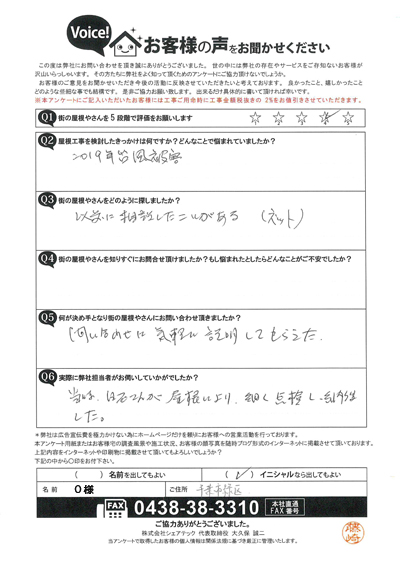 Voice!
お客様の声をお聞かせください
この度は弊社にお問い合わせを頂き誠にありがとうございました。世の中には弊社の存在やサービスをご存知ないお客様が
沢山いらっしゃいます。その方たちに弊社をよく知って頂くためのアンケートにご協力頂けないでしょうか。
お客様のご意見をお聞かせいただき今後の活動に反映させていただきたいと考えております。良かったこと、嬉しかったこと
どのような些細な事でも結構です。是非ご協力お願い致します。出来るだけ具体的に書いて頂ければ幸いです。
※本アンケートにご記入いただいたお客様には工事ご用命時に工事金額税抜きの 2%をお値引きさせていただきます。
Q1 街の屋根やさんを 5 段階で評価をお願いします ☆ ☆ ☆ ☆ ☆
Q2 屋根工事を検討したきっかけは何ですか?どんなことで悩まれていましたか?
2019年台風被害
Q3 街の屋根やさんをどのように探しましたか?
以前に相談したことがある (ネット)
Q4 街の屋根やさんを知りすぐにお問合せ頂けましたか?もし悩まれたとしたらどんなことがご不安でしたか?
Q5 何が決め手となり街の屋根やさんにお問い合わせ頂きましたか?
問い合わせに気軽に説明してもらえた.
Q6 実際に弊社担当者がお伺いしていかがでしたか?
屋根に上り、細く点検し
した。
*弊社は広告宣伝費を極力かけない為にホームページだけを頼りにお客様への営業活動を行っております。
本アンケート用紙またはお客様宅の調査風景や施工状況、お客様の顔写真を随時ブログ形式のインターネットに掲載させて頂いております。
上記内容をインターネットや印刷物に掲載させて頂いてもよろしいでしょうか?
下記の中から〇印をお付け下さい。
( ) 名前を出してもよい ( ) イニシャルなら出してもよい
名 前 O様 ご住所 千葉市緑区
FAX 0438-38-3310 本社直通 FAX 番号
ご協力ありがとうございました。
株式会社シェアテック 代表取締役 大久保 誠二
当アンケートで取得したお客様の個人情報は関係法規に基づき厳正に管理いたします。